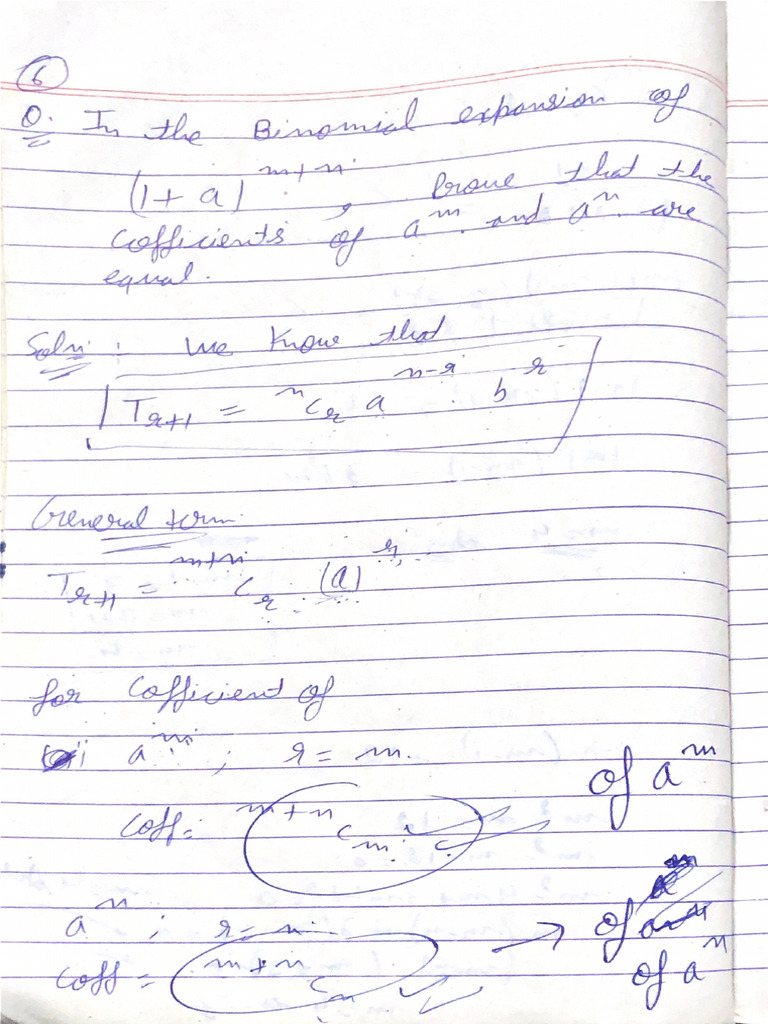 6
Q. In the Binomial expansion of
(1 + a)^(m+n) , Prove that the
cofficients of a^m and a^n are
equal.
Soln : we know that
T_(r+1) = ^nC_r a^(n-r) b^r
General term
T_(r+1) = ^(m+n)C_r (a)^r
for cofficient of
a^m ; r = m.
Coff = ^(m+n)C_m of a^m
a^n ; r = n
Coff = ^(m+n)C_n → of a^n